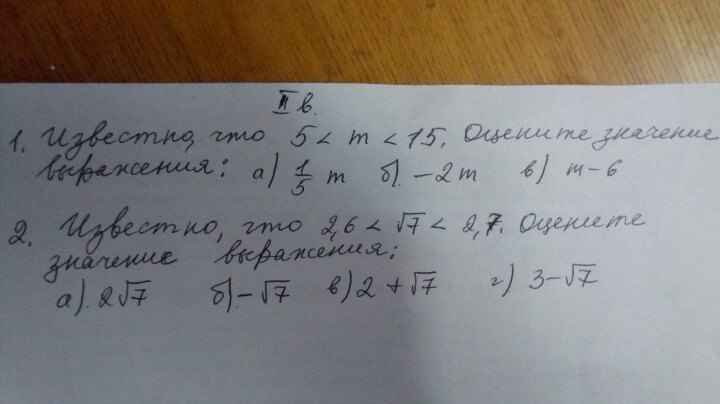 II в.
1. Известно, что 5 < m < 15. Оцените значение
выражения: а) 1/5 m б). -2m в) m-6
2. Известно, что 2,6 < √7 < 2,7. Оцените
значение выражения:
а). 2√7 б) -√7 в) 2 + √7 г) 3-√7